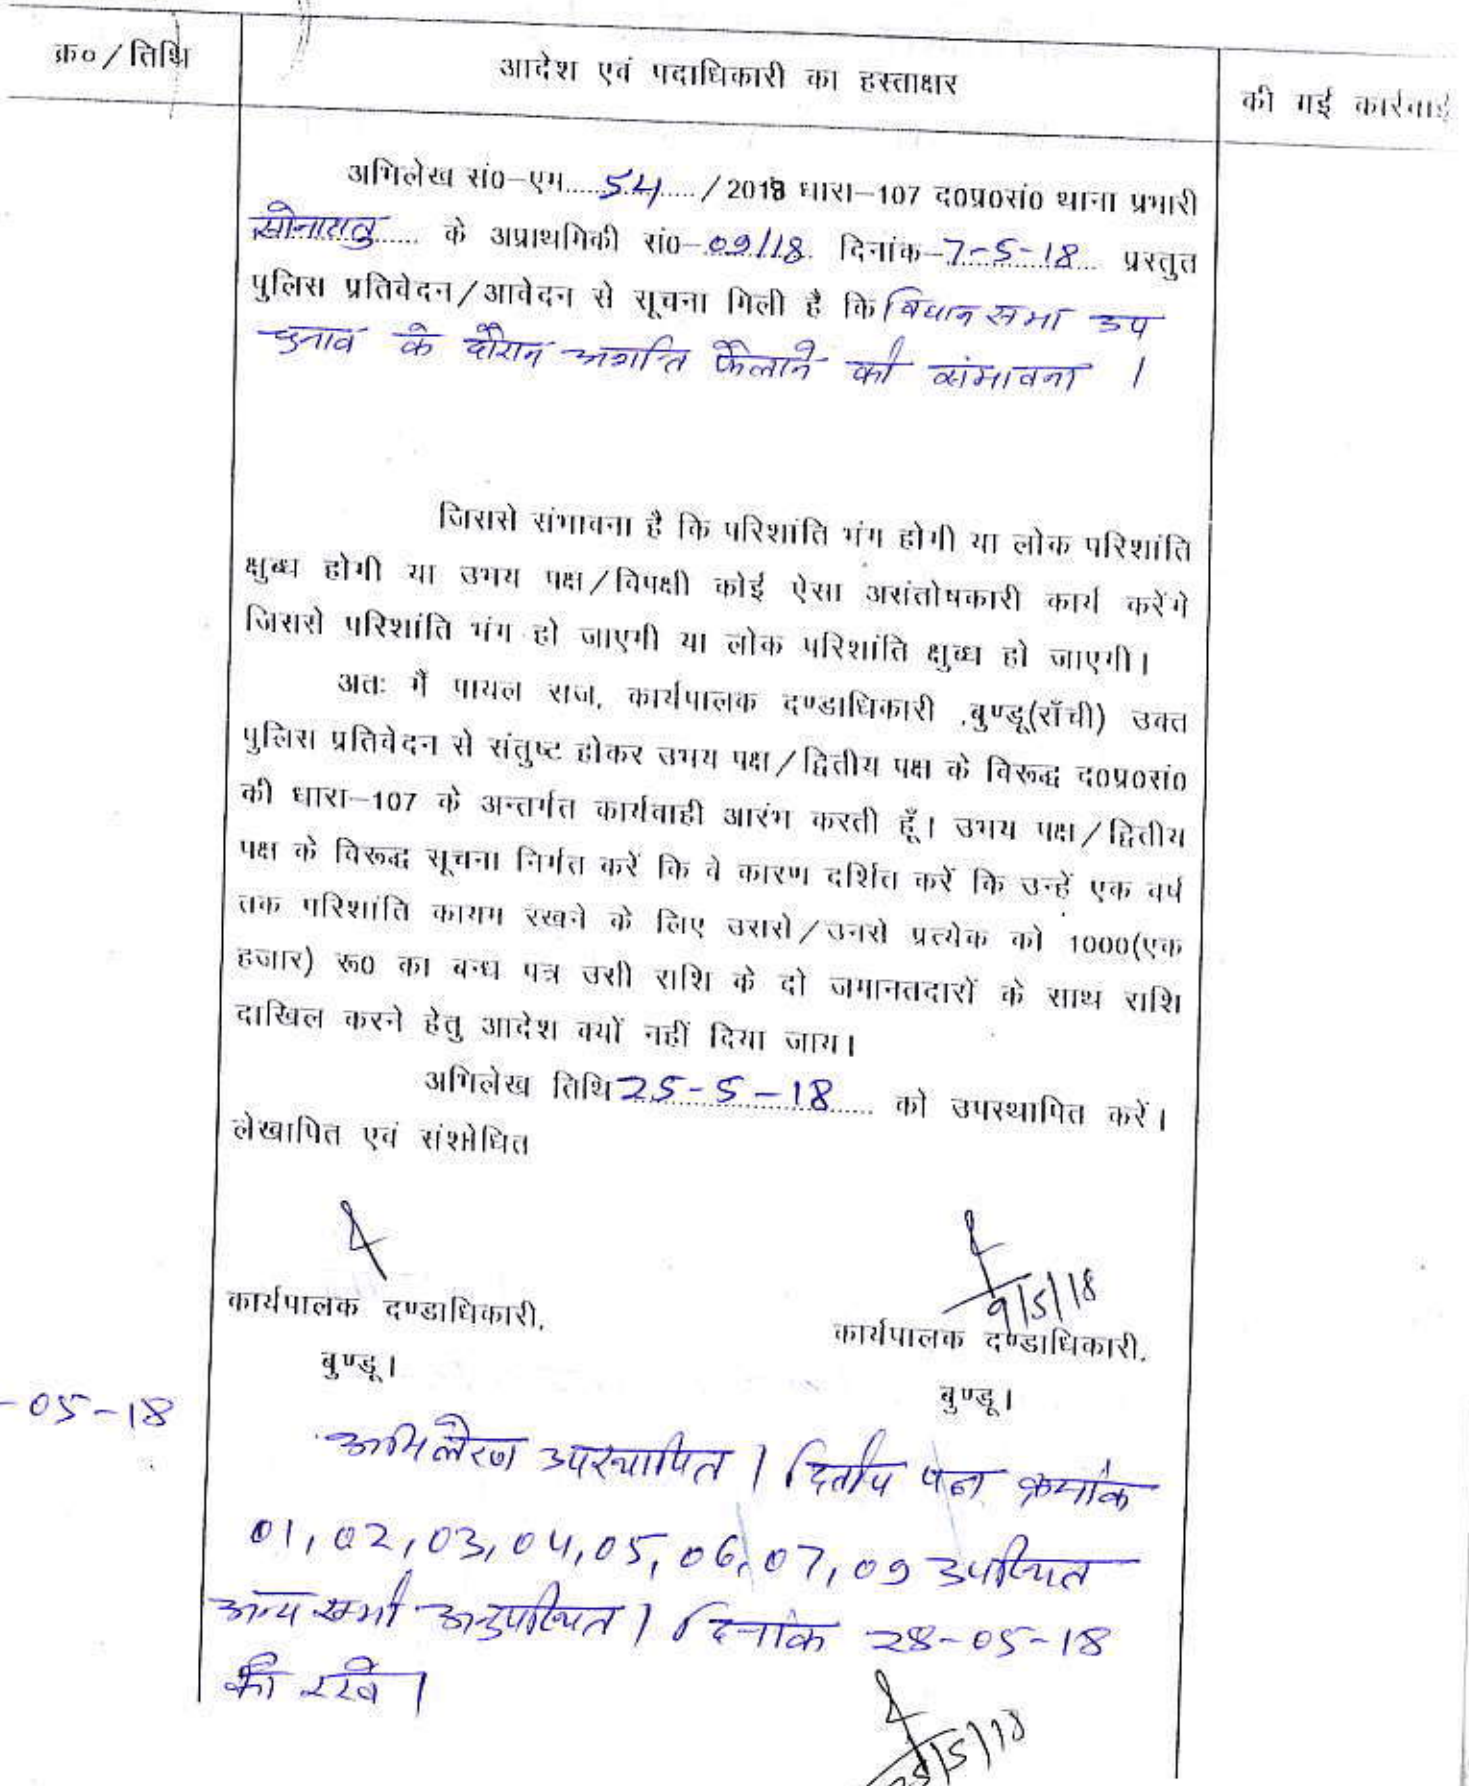 क्र० / तिथि
आदेश एवं पदाधिकारी का हस्ताक्षर
की गई कार्रवाई
अभिलेख सं०-एम.....54...../2018 धारा-107 द०प्र०सं० थाना प्रभारी
सोनाहातु..... के अप्राथमिकी सं०-09/18. दिनांक-7-5-18 प्रस्तुत
पुलिस प्रतिवेदन/आवेदन से सूचना मिली है कि विधान सभा उप
चुनाव के दौरान अशांति फैलाने की संभावना ।
जिससे संभावना है कि परिशांति भंग होगी या लोक परिशांति
क्षुब्ध होगी या उभय पक्ष/विपक्षी कोई ऐसा असंतोषकारी कार्य करेंगे
जिससे परिशांति भंग हो जाएगी या लोक परिशांति क्षुब्ध हो जाएगी।
अतः मैं पायल राज, कार्यपालक दण्डाधिकारी ,बुण्डू(राँची) उक्त
पुलिस प्रतिवेदन से संतुष्ट होकर उभय पक्ष/द्वितीय पक्ष के विरूद्ध द०प्र०सं०
की धारा-107 के अन्तर्गत कार्यवाही आरंभ करती हूँ। उभय पक्ष/द्वितीय
पक्ष के विरूद्ध सूचना निर्गत करें कि वे कारण दर्शित करें कि उन्हें एक वर्ष
तक परिशांति कायम रखने के लिए उससे/उनसे प्रत्येक को 1000(एक
हजार) रू० का बन्ध पत्र उसी राशि के दो जमानतदारों के साथ राशि
दाखिल करने हेतु आदेश क्यों नहीं दिया जाय।
अभिलेख तिथि 25-5-18 को उपस्थापित करें।
लेखापित एवं संशोधित
9/5/18
कार्यपालक दण्डाधिकारी,
कार्यपालक दण्डाधिकारी,
बुण्डू।
बुण्डू।
-05-18
अभिलेख उपस्थापित । द्वितीय पक्ष क्रमांक
01, 02, 03, 04, 05, 06, 07, 09 उपस्थित
अन्य सभी अनुपस्थित । दिनांक 28-05-18
को रखें ।
25/5/18